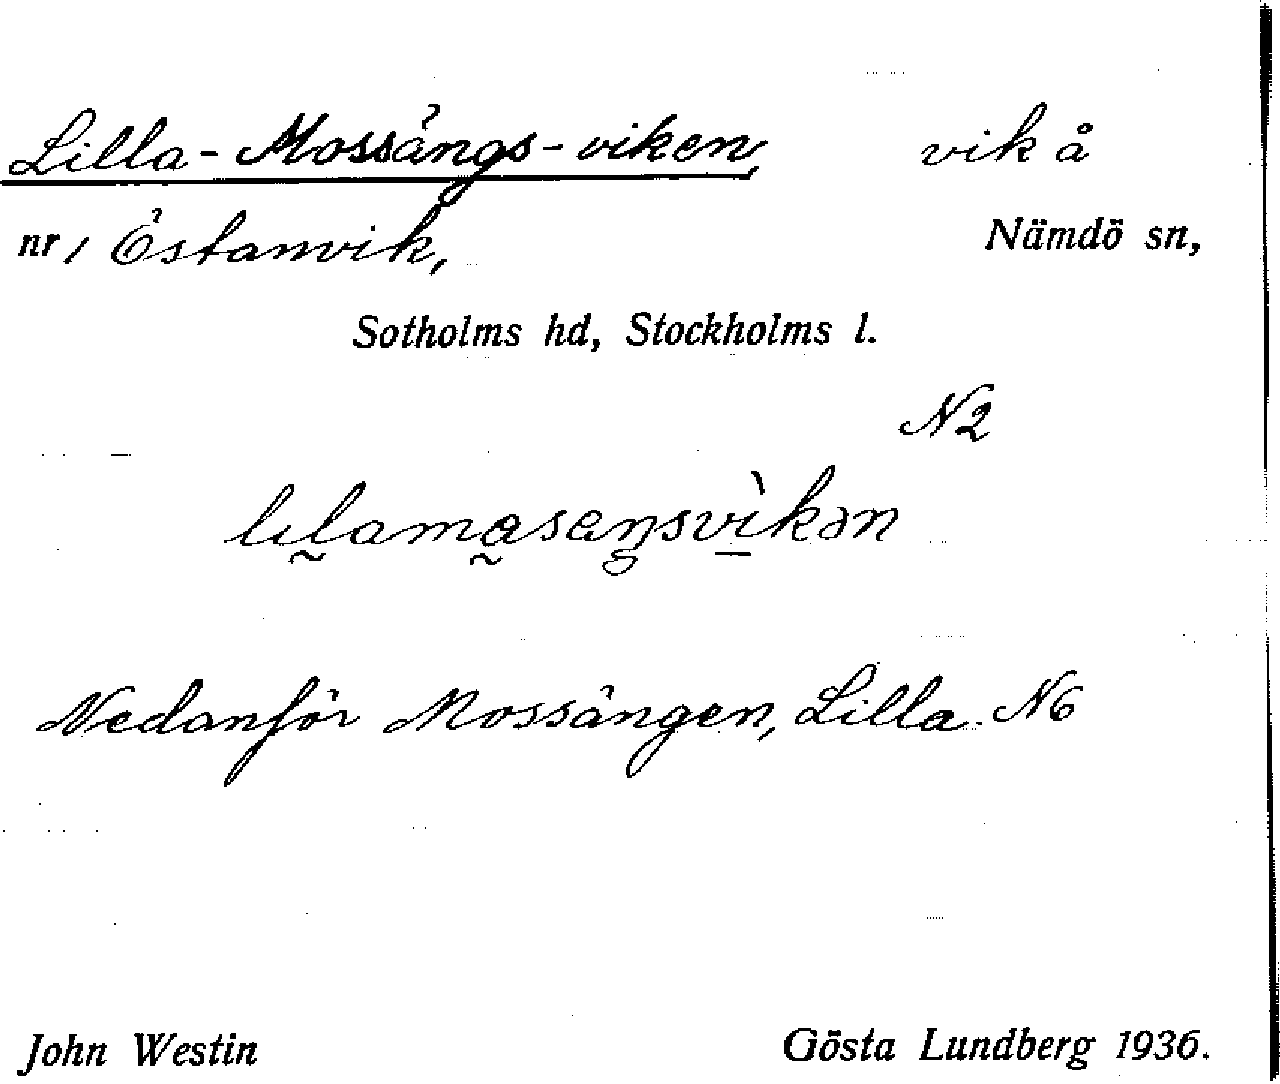 Lilla-Mossängs-viken, vik å
nr 1 Östanvik, Nämdö sn,
Sotholms hd, Stockholms l.
N2
Nedanför Mossängen, Lilla. N6
John Westin Gösta Lundberg 1936.